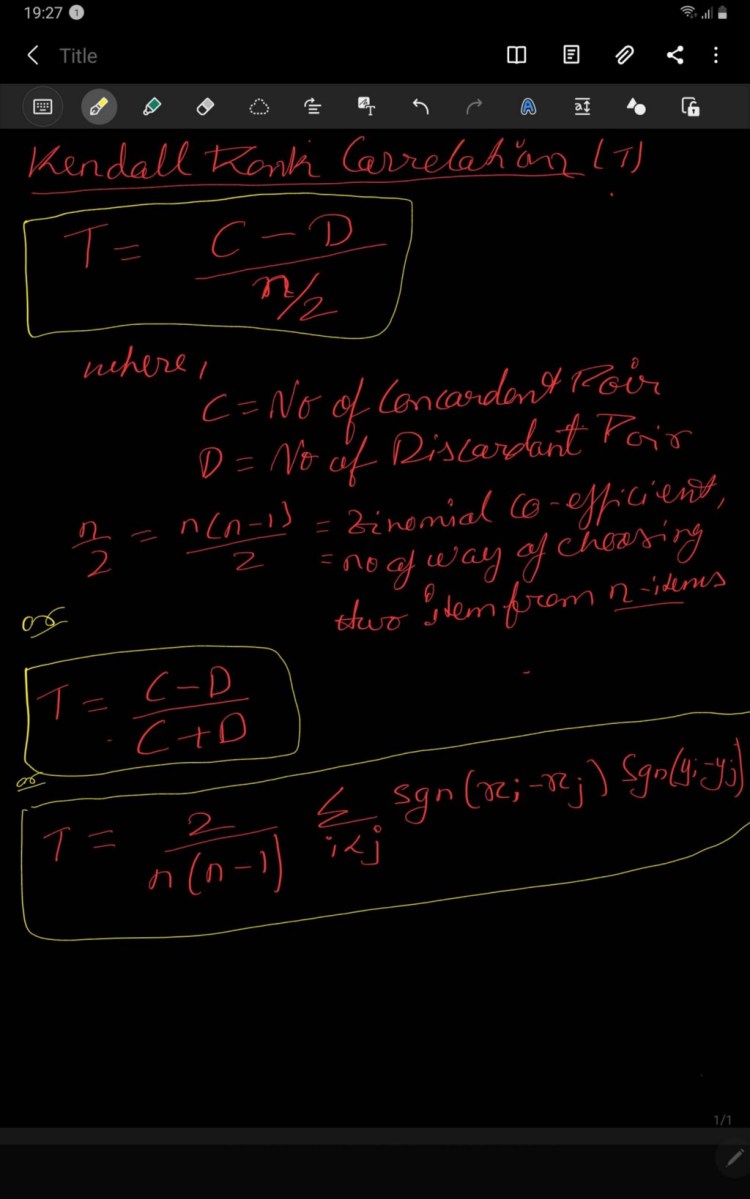 19:27 1
Title
Kendall Rank Correlation (T)
T = C - D / n/2
where,
C = No of Concordant Pair
D = No of Discardant Pair
n/2 = n(n-1)/2 = Binomial co-efficient,
= no of way of choosing
two item from n-items
or
T = C - D / C + D
or
T = 2 / n(n-1) Σ i<j sgn(xi - xj) Sgn(yi - yj)
1/1